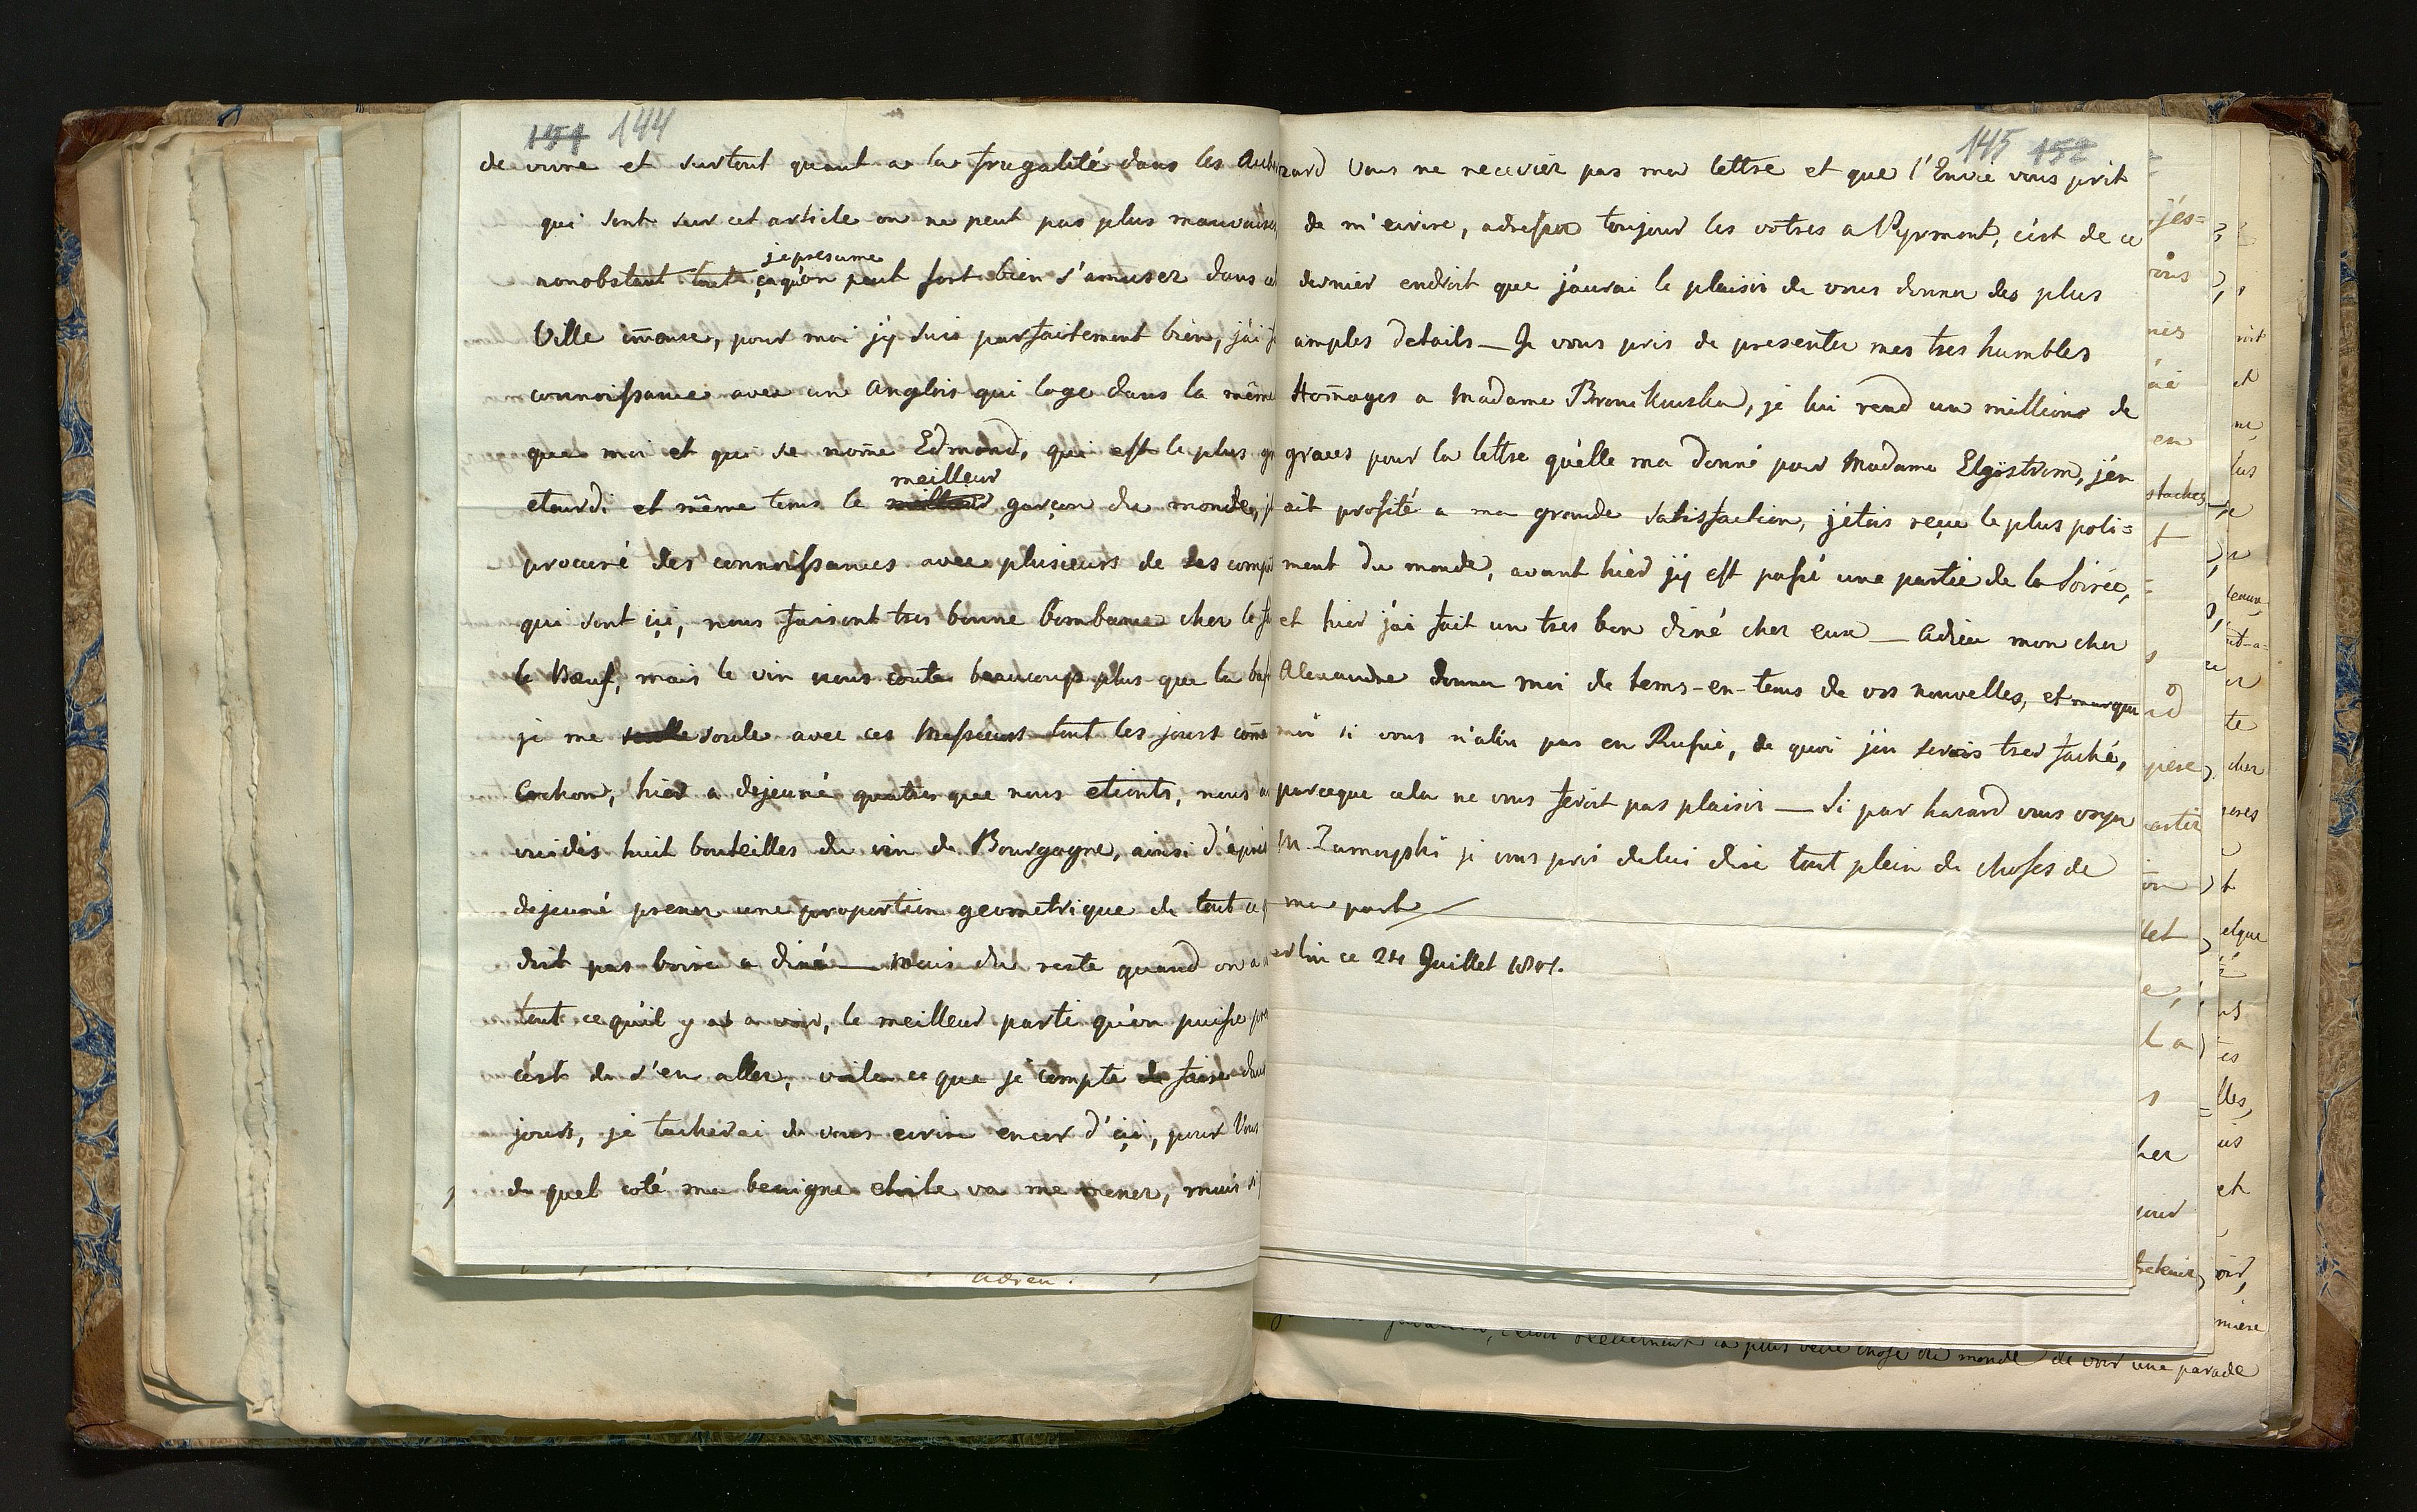 151 144
de vivre et surtout quant a la frugalité dans les Aub
qui sont sur cet article on ne peut pas plus mauvaises
je presume
nonobstant tout ça qu'on peut fort bien s'amuser dans
Ville im̄ense, pour moi j'y suis parfaitement bien, j'ai
connoissance avec une Anglois qui loge dans la même
que moi et qui se nom̄e Edmond, qui est le plus
meilleur
etourdi et même tems le garçon du monde,
procuré des connoissances avec plusieurs de ses comp
qui sont içi, nous faisont tres bonne bombance cher
le Bœuf, mais le vin nous coute beaucoup plus que la
je me soule avec ces Messieurs tout les jours com̄e
Cochon, hier a dejeuné quatres que nous etionts, nous
vuidés huit bouteilles du vin de Bourgogne, ainsi d'après
dejeuné prener une proportion geometrique de tout
doit pas boire a diné — Mais du reste quand on a
tout ce qu'il y a a voir, le meilleur parti qu'on puisse
c'est de s'en aller, voila ce que je compte de faire dans
jours, je tacherai de vous ecrire encor d'içi, pour Vous
de quel coté ma benigne etoile va me mener, mais si
adieu.
145 152
zard Vous ne recevier pas ma lettre et que l'Envie vous prit
de m'ecrire, adresser toujour les votres a Pyrmont, c'est de ce
dernier endroit que j'aurai le plaisir de vous donner des plus
amples details — Je vous pris de presenter mes tres humbles
Hom̄ages a Madame Bronikowska, je lui rend un millions de
graces pour la lettre qu'elle ma donné pour Madame Elgöstrom, j'en
ait profité a ma grande satisfaction, j'etois reçu le plus poli=
ment du monde, avant hier j'y est passé une partie de la Soirée,
et hier j'ai fait un tres bon diné cher eux — Adieu mon cher
Alexandre donner moi de tems-en-tems de vos nouvelles, et marquer
moi si vous n'aler pas en Russie, de quoi j'en serois tres faché,
parceque cela ne vous feroit pas plaisir — Si par hazard vous voyer
M. Zamoyski je vous pris de lui dire tout plein de choses de
ma part
erlin ce 24 Juillet 1801.
la plus belle chose du monde de voir une parade